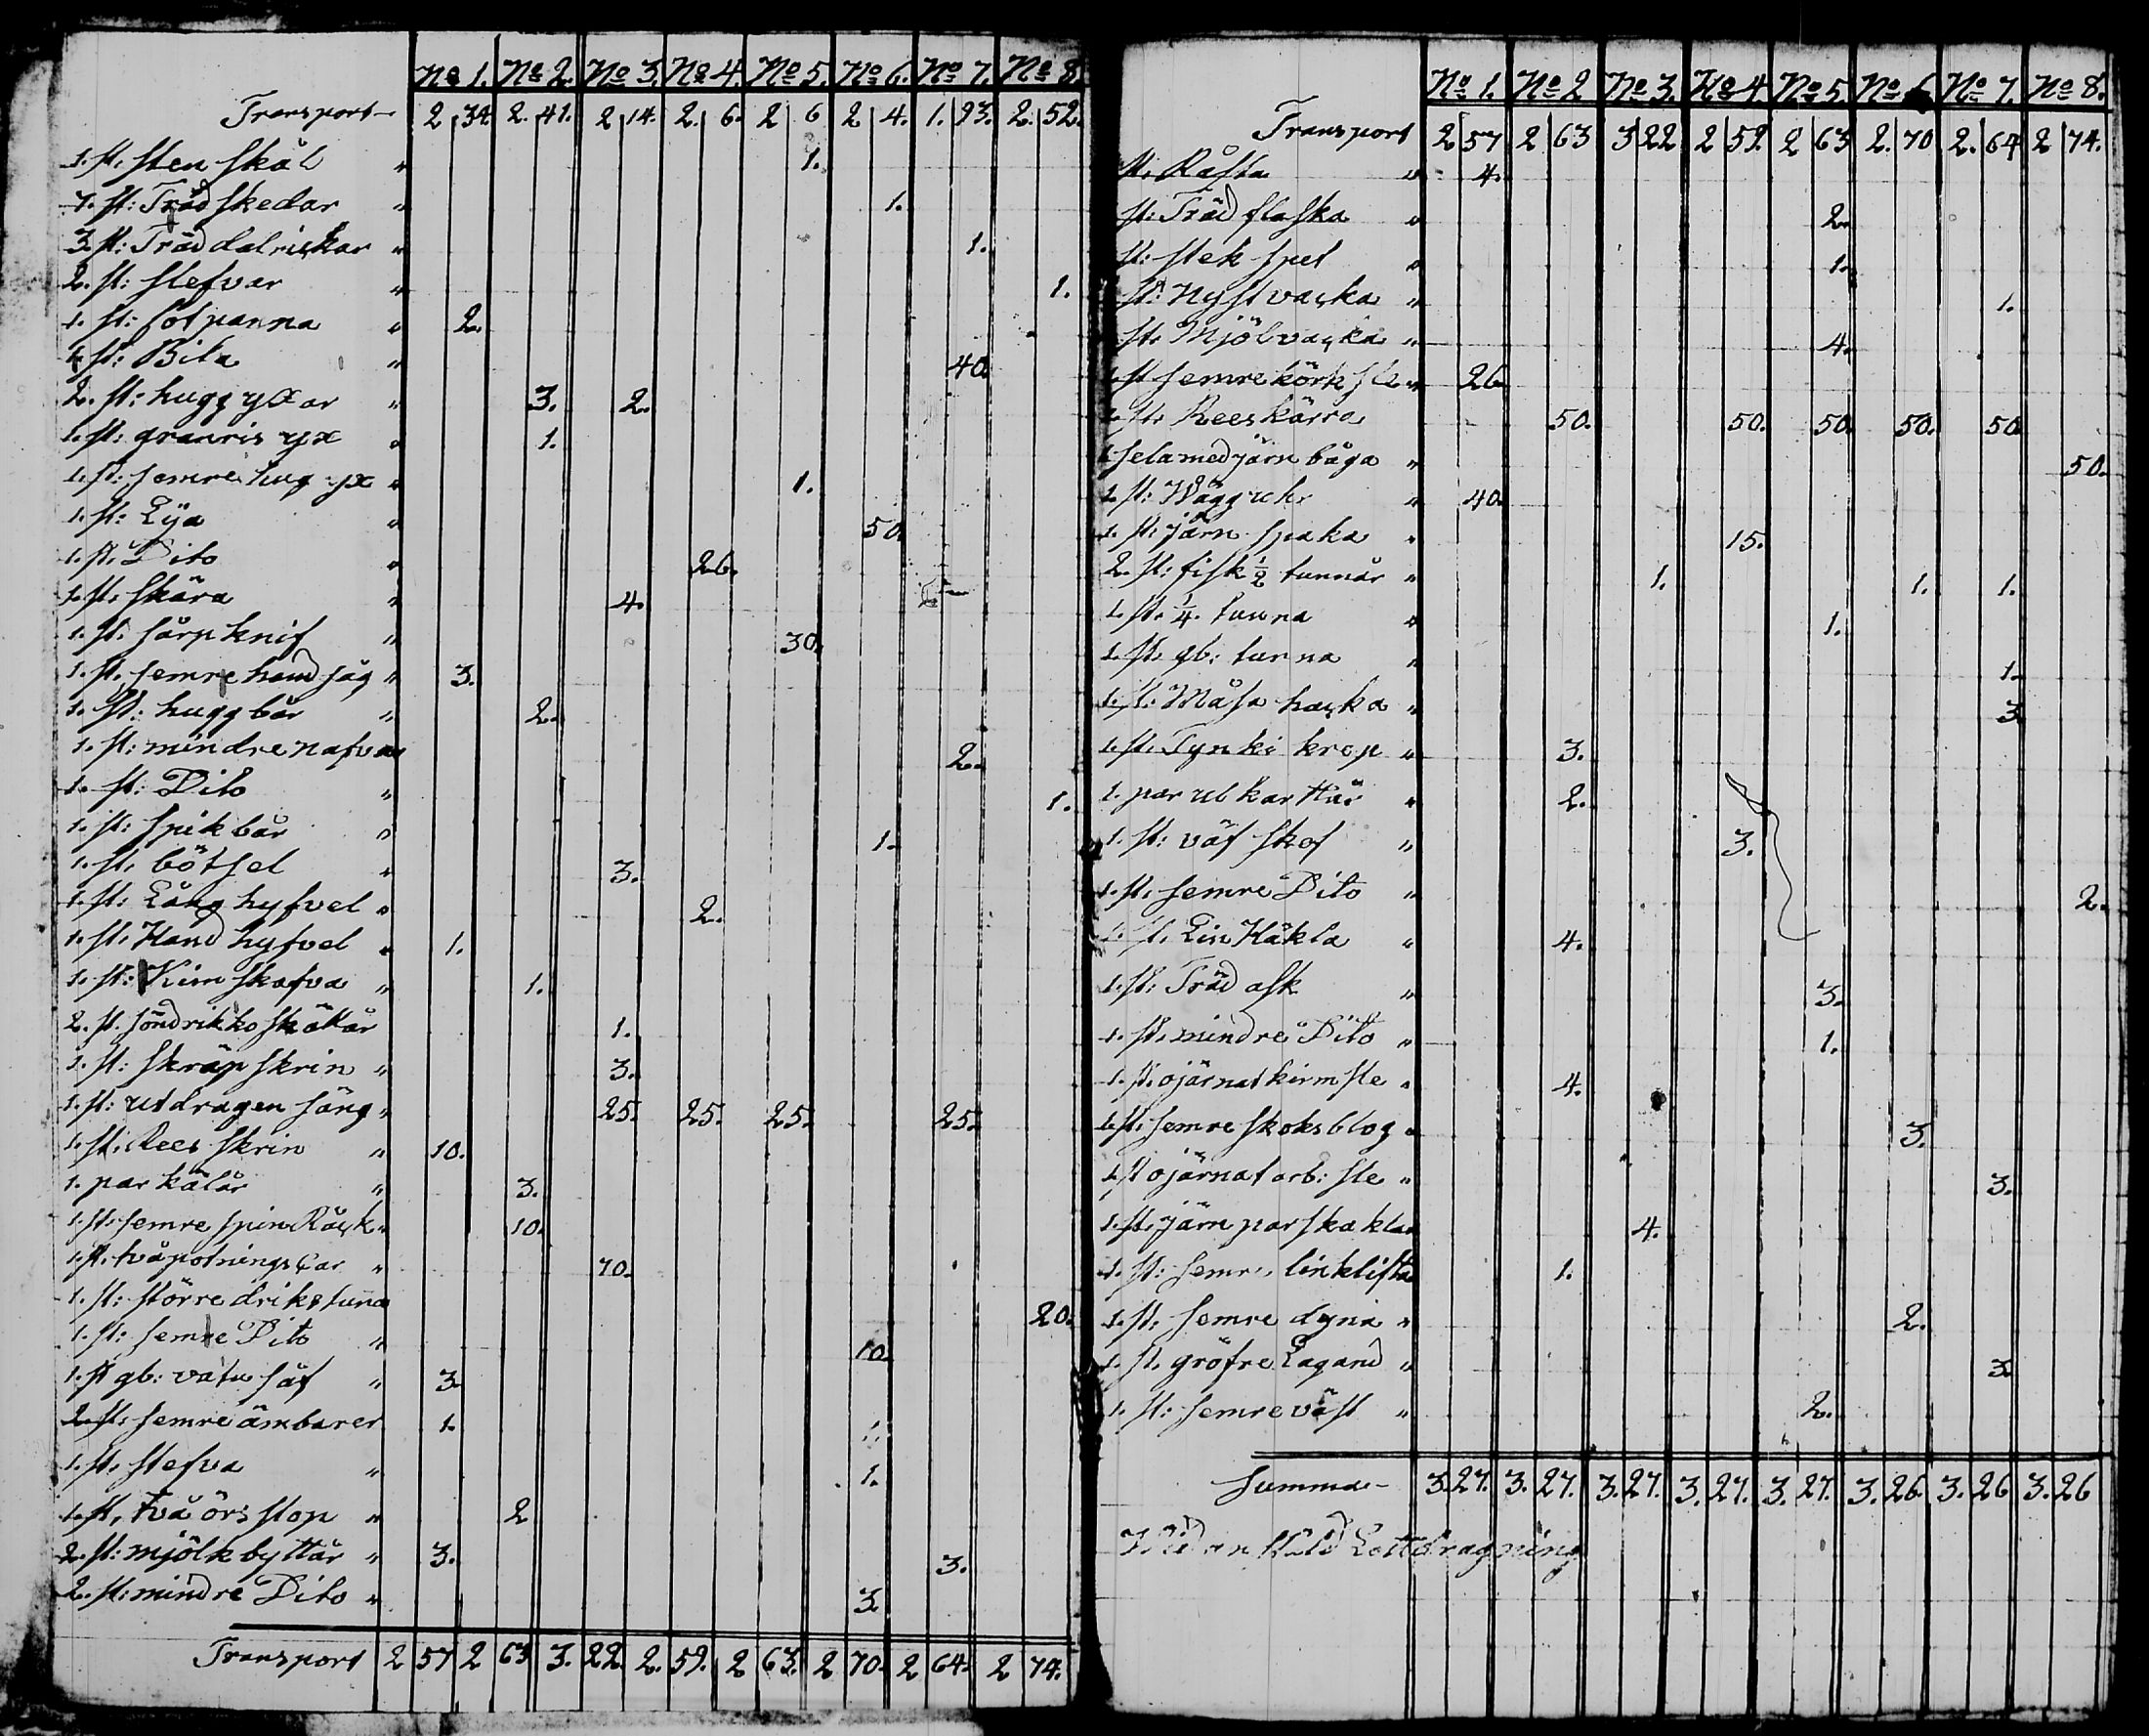 No 1. No 2. No 3. No 4. No 5. No 6. No 7. No 8.
Transport 2 34. 2. 41. 2 14. 2. 6. 2 6 2 4. 1. 93. 2. 52.
1. st. sten skål " 1.
7. st: Träd skedar " 1.
3. st: Träd dalrickar " 1.
2. st: slefvar " 1.
1. st: sot panna " 2.
1. st: Bila " 40.
2. st: hugg yxor " 3. 2.
1. st: granris yx " 1.
1. st: semre hug yx " 1.
1. st: Lija " 50.
1. st. Dito " 26.
1. st. skära " 4.
1. st. särp knif " 30.
1. st. semre hand såg " 3.
1. st: hugg bår " 2.
1. st: mindre nafvar 2.
1. st: Dito " 1.
1. st: spik bår " 1.
1. st. bötsel " 3.
1. st: Lång hyfvel " 2.
1. st. Hand hyfvel " 1.
1. st: Kim skafva " 1.
2. st. söndrikko skäkår 1.
1. st: skräp skrin " 3.
1. st: utdragen säng " 25. 25. 25. 25.
1. st. Rees skrin " 10.
1. par kälår " 3.
1. st. semre spin Råck " 10.
1. st. två potnings car " 70.
1. st: större driks tuna 20.
1. st: semre Dito " 10.
1. st gb: vatu såf " 3.
2. st. semre ämbarer 1. 1.
1. st. slefva " 1.
1. st, två örs stop " 2
2. st: mjölk byttår " 3. 3.
2. st: mindre Dito " 3
Transport 2 57 2 63 3. 22. 2. 59. 2 63. 2 70. 2 64. 2 74.
No 1. No 2 No 3. No 4. No 5. No 6 No 7. No 8.
Transport 2 57 2 63 3 22 2 59. 2 63 2. 70 2. 64 2 74.
st. Råsta " 4.
st: Träd flaska " 2.
st: stek spet " 1.
st: Nyst vacka " 1.
st. Mjöl vacka " 4.
1. st semre körk sle " 26
1. st. Rees kärra 50. 50. 50. 50. 50
1 sela med järn båga " 50.
1. st: Wägg uhr " 40.
1. st: järn spaka " 15.
2. st: fisk ½ tunnår " 1. 1. 1.
1. st. ¼. tunna " 1.
1. st. gb: tunna " 1.
1. st. Måsa hacka " 3
1. st. Tynki krop " 3.
1. par ul karttår " 2.
1. st: väf skof " 3.
1. st. semre Dito " 2.
1. st. Lin Häkla " 4.
1. st: Träd ask " 3.
1. st. mindre Dito " 1.
1. st. ojärnat kirm sle " 4.
1. st. semre skoksblog " 3.
1. st ojärnat arb: sle " 3.
1. st. järn par skakla 4.
1. st: semre linklifta 1.
1. st. semre dyna " 2.
1. st. gröfre Lagand " 3
1. st: semre väst " 2.
Summa 3. 27. 3. 27. 3. 27. 3. 27. 3. 27. 3. 26. 3. 26 3. 26
Lottdragning